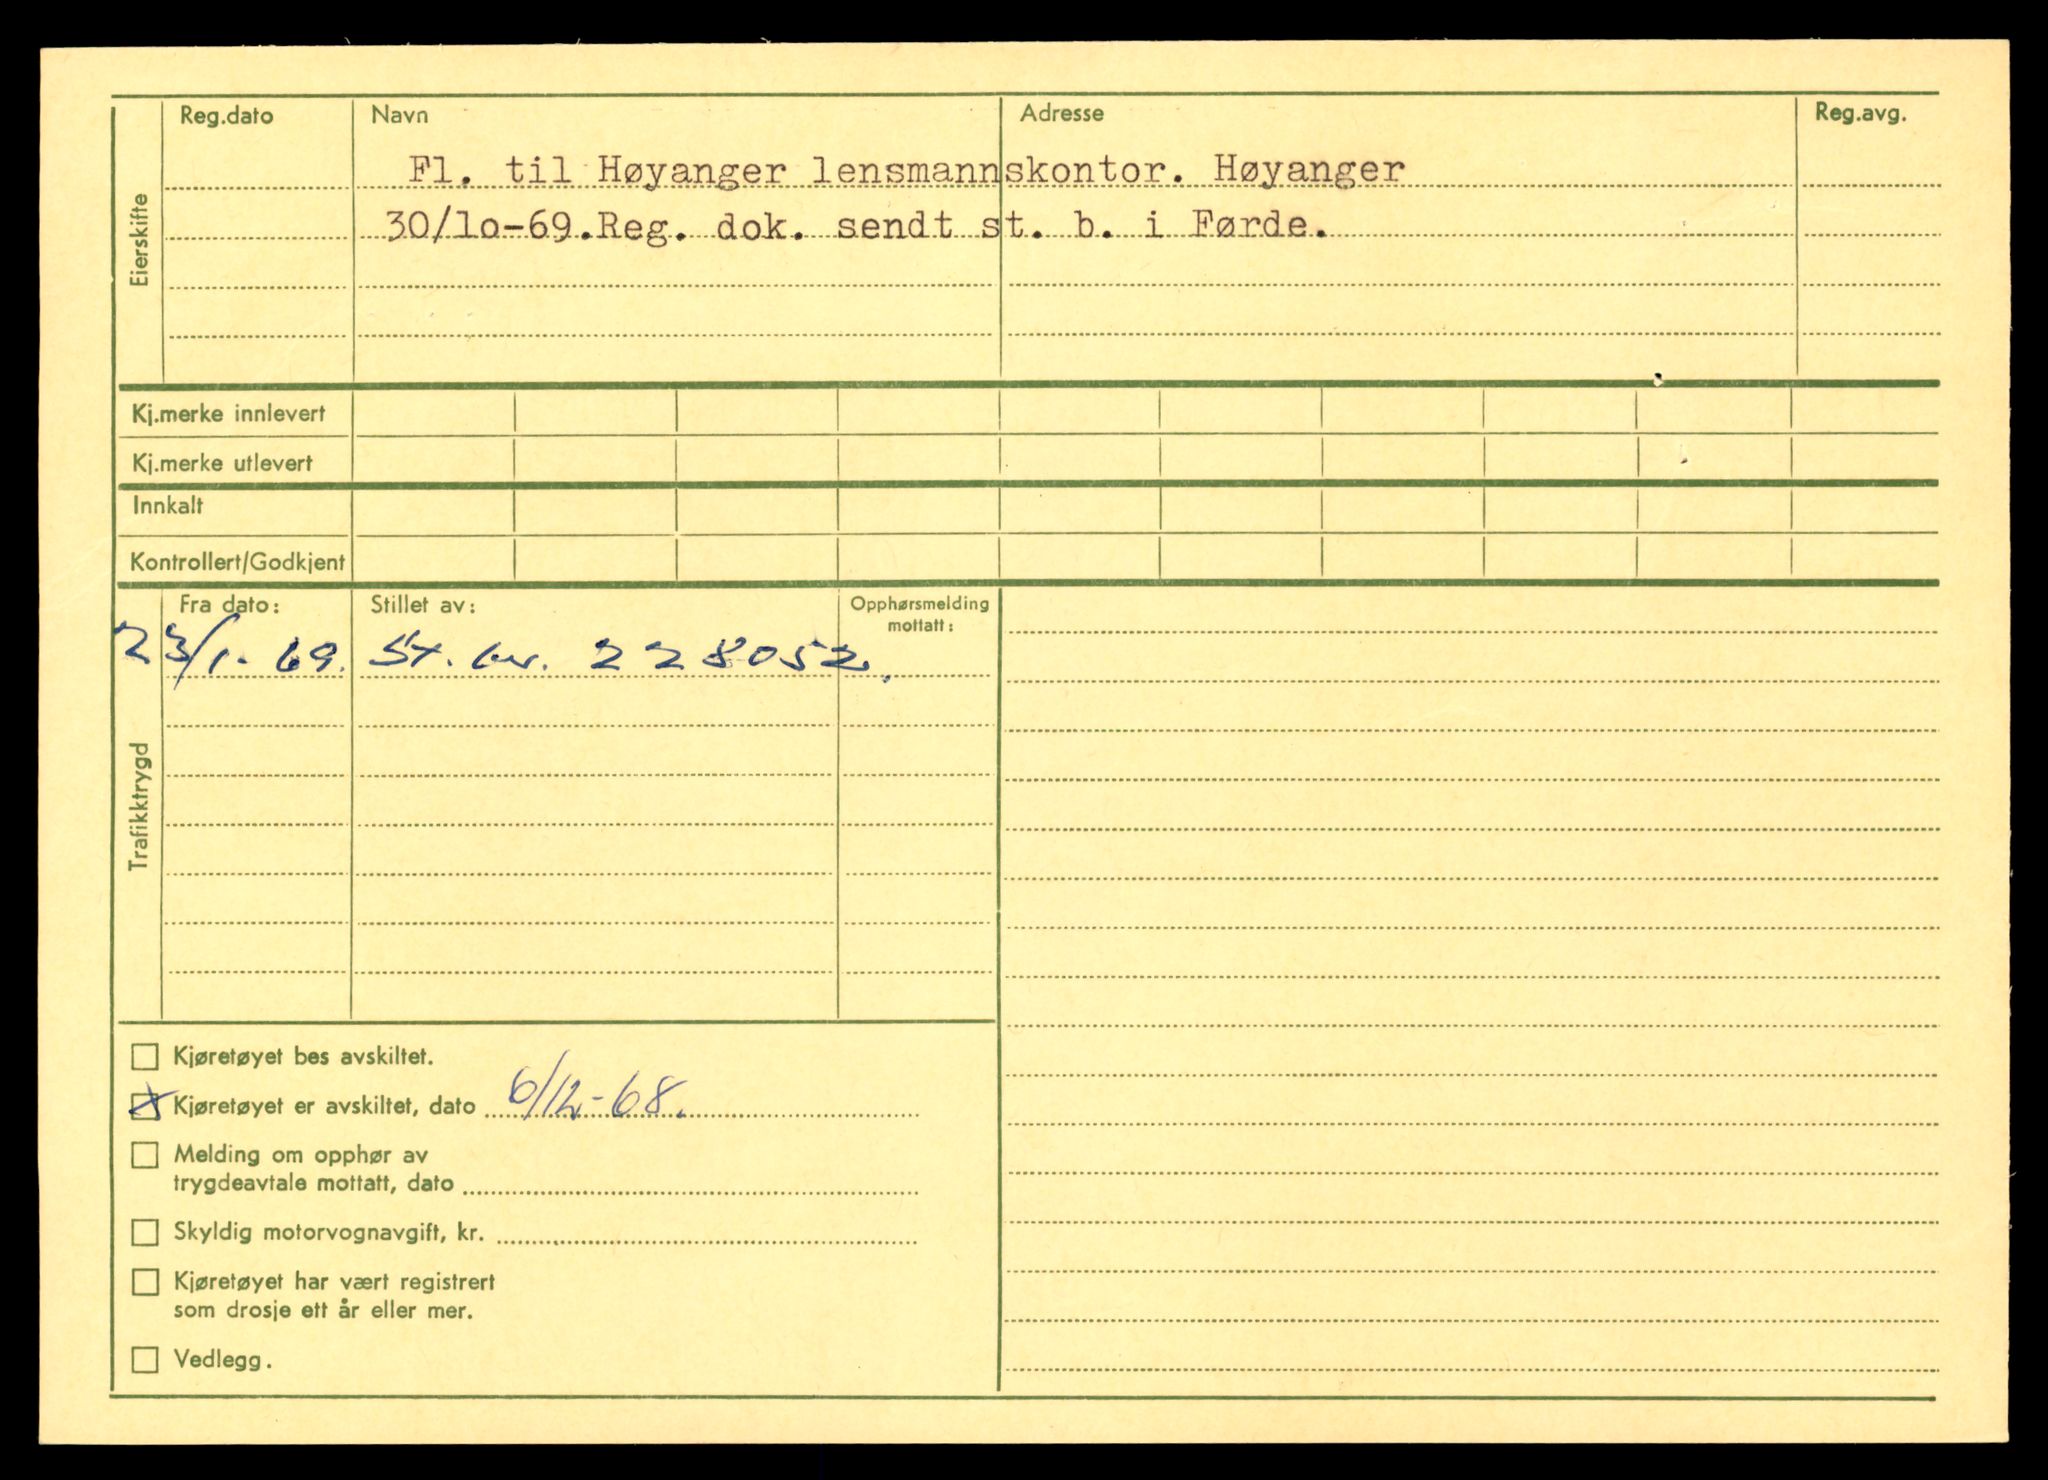 Eierskifte
Reg.dato Navn Adresse Reg.avg.
Fl. til Høyanger lensmannskontor. Høyanger
30/lo-69.Reg. dok. sendt st. b. i Førde.
Kj.merke innlevert
Kj.merke utlevert
Innkalt
Kontrollert/Godkjent
Trafikktrygd
Fra dato: Stillet av: Opphørsmelding
mottatt:
23/1-69. St. br. 228052.
Kjøretøyet bes avskiltet.
X Kjøretøyet er avskiltet, dato 6/12-68.
Melding om opphør av
trygdeavtale mottatt, dato
Skyldig motorvognavgift, kr.
Kjøretøyet har vært registrert
som drosje ett år eller mer.
Vedlegg.